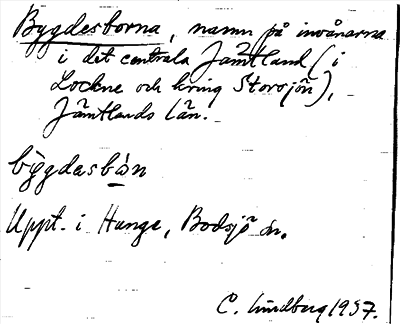 Bygdesborna, namn på invånarna
i det centrala Jämtland (i
Lockne och kring Storsjön),
Jämtlands län.
bỳgdasbån
Uppt. i Hunge, Bodsjö sn.
C. Lindberg 1937.